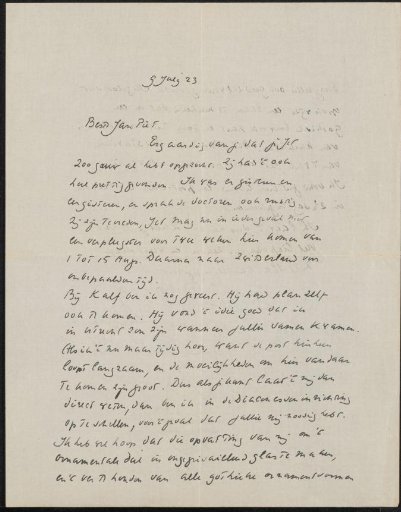 9 July 23
Beste Jan Piet.
Erg aardig van je dat je Jet
zoo gauw al hebt opgezocht. Zij had 't ook
heel prettig gevonden. Ik was er gisteren en
eergisteren, en sprak de doctoren ook
zij zijn tevreden, Jet mag nu in ieder geval
een verpleegster voor twee weken hier komen van
1 tot 15 Aug. Daarna naar Zwitserland voor
onbepaalden tijd.
Bij Kalf ben ik nog geweest. Hij had plan zelf
ook te komen. Hij vond 't idée goed dat ik
in Utrecht zou zijn wanneer jullie samen kwamen.
Als ik 't nu maar tijdig hoor, want de post hier
loopt langzaam, en de moeilijkheden om hier vandaan
te komen zijn groot. Dus als je kunt laat 't mij dan
direct weten, dan ben ik in de diaconessen inrichting
op te schellen, voor 't geval dat jullie mij noodig hebt.
Ik heb wel hoop dat die opvatting van mij om 't
ornamentale deel in ongebrandschilderd glas te maken,
en 't van houden van alle gothieke ornamentvormen